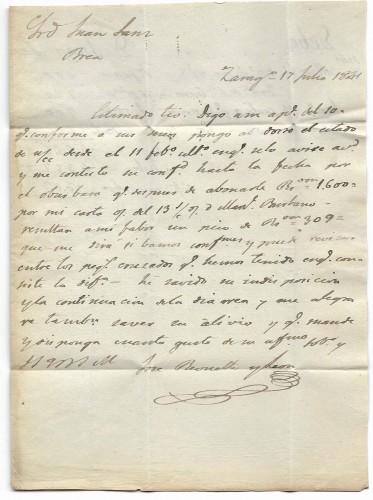 Srd Juan Sanz
Brea
Zarag.ª 17 Julio 1841
Estimado tio: Digo a m ap.da del 10-
q.e conforme a sus pongo al dorso el estado
de desde el 11 feb.o ult.o en q.e selo avise a
y me contesto su conf.d hasta la fecha por
el obserbará q.e despues de abonarle R.s on 1,600=
por mi carta del 13 d Man.l Barbano-
resultan a mi fabor un pico de R.s on 309=
que me dirá si bamos confmes y puede
entre los q.e hemos tenido en q.e con-
siste la dif.a - he savido su indisposicion
y la continuacion de la diarrea y me alegra
re tambn saver su alivio y q.e mande
y disponga cuanto guste de su affmo sob.o y
S S Q B S M
Jose y Leon